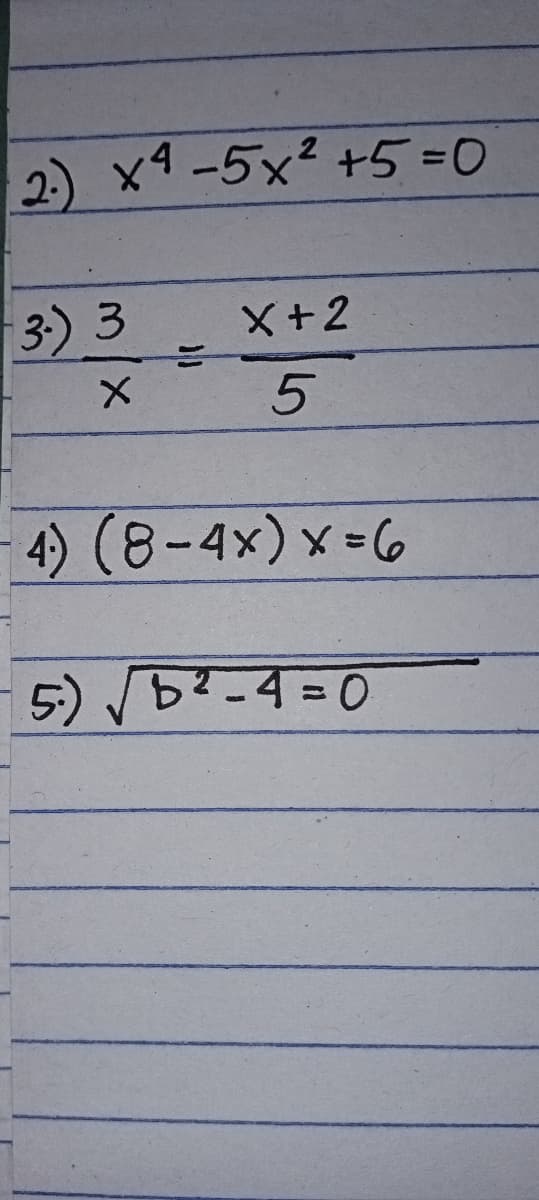 2.) x⁴ -5x² +5 =0
3.) 3/x = x+2/5
4.) (8-4x) x =6
5.) √b² - 4 = 0